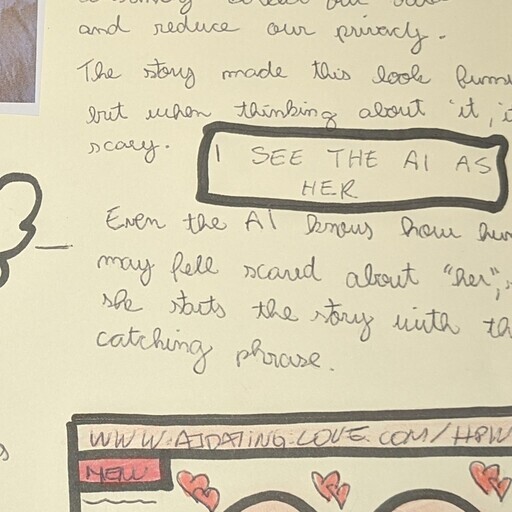 and reduce our privacy.
The story made this look
but when thinking about it,
scary.
I SEE THE AI AS
HER
Even the AI knows how
may fell scared about "her",
she starts the story with
catching phrase.
WWW.AIDATING.LOVE.COM/
MENU